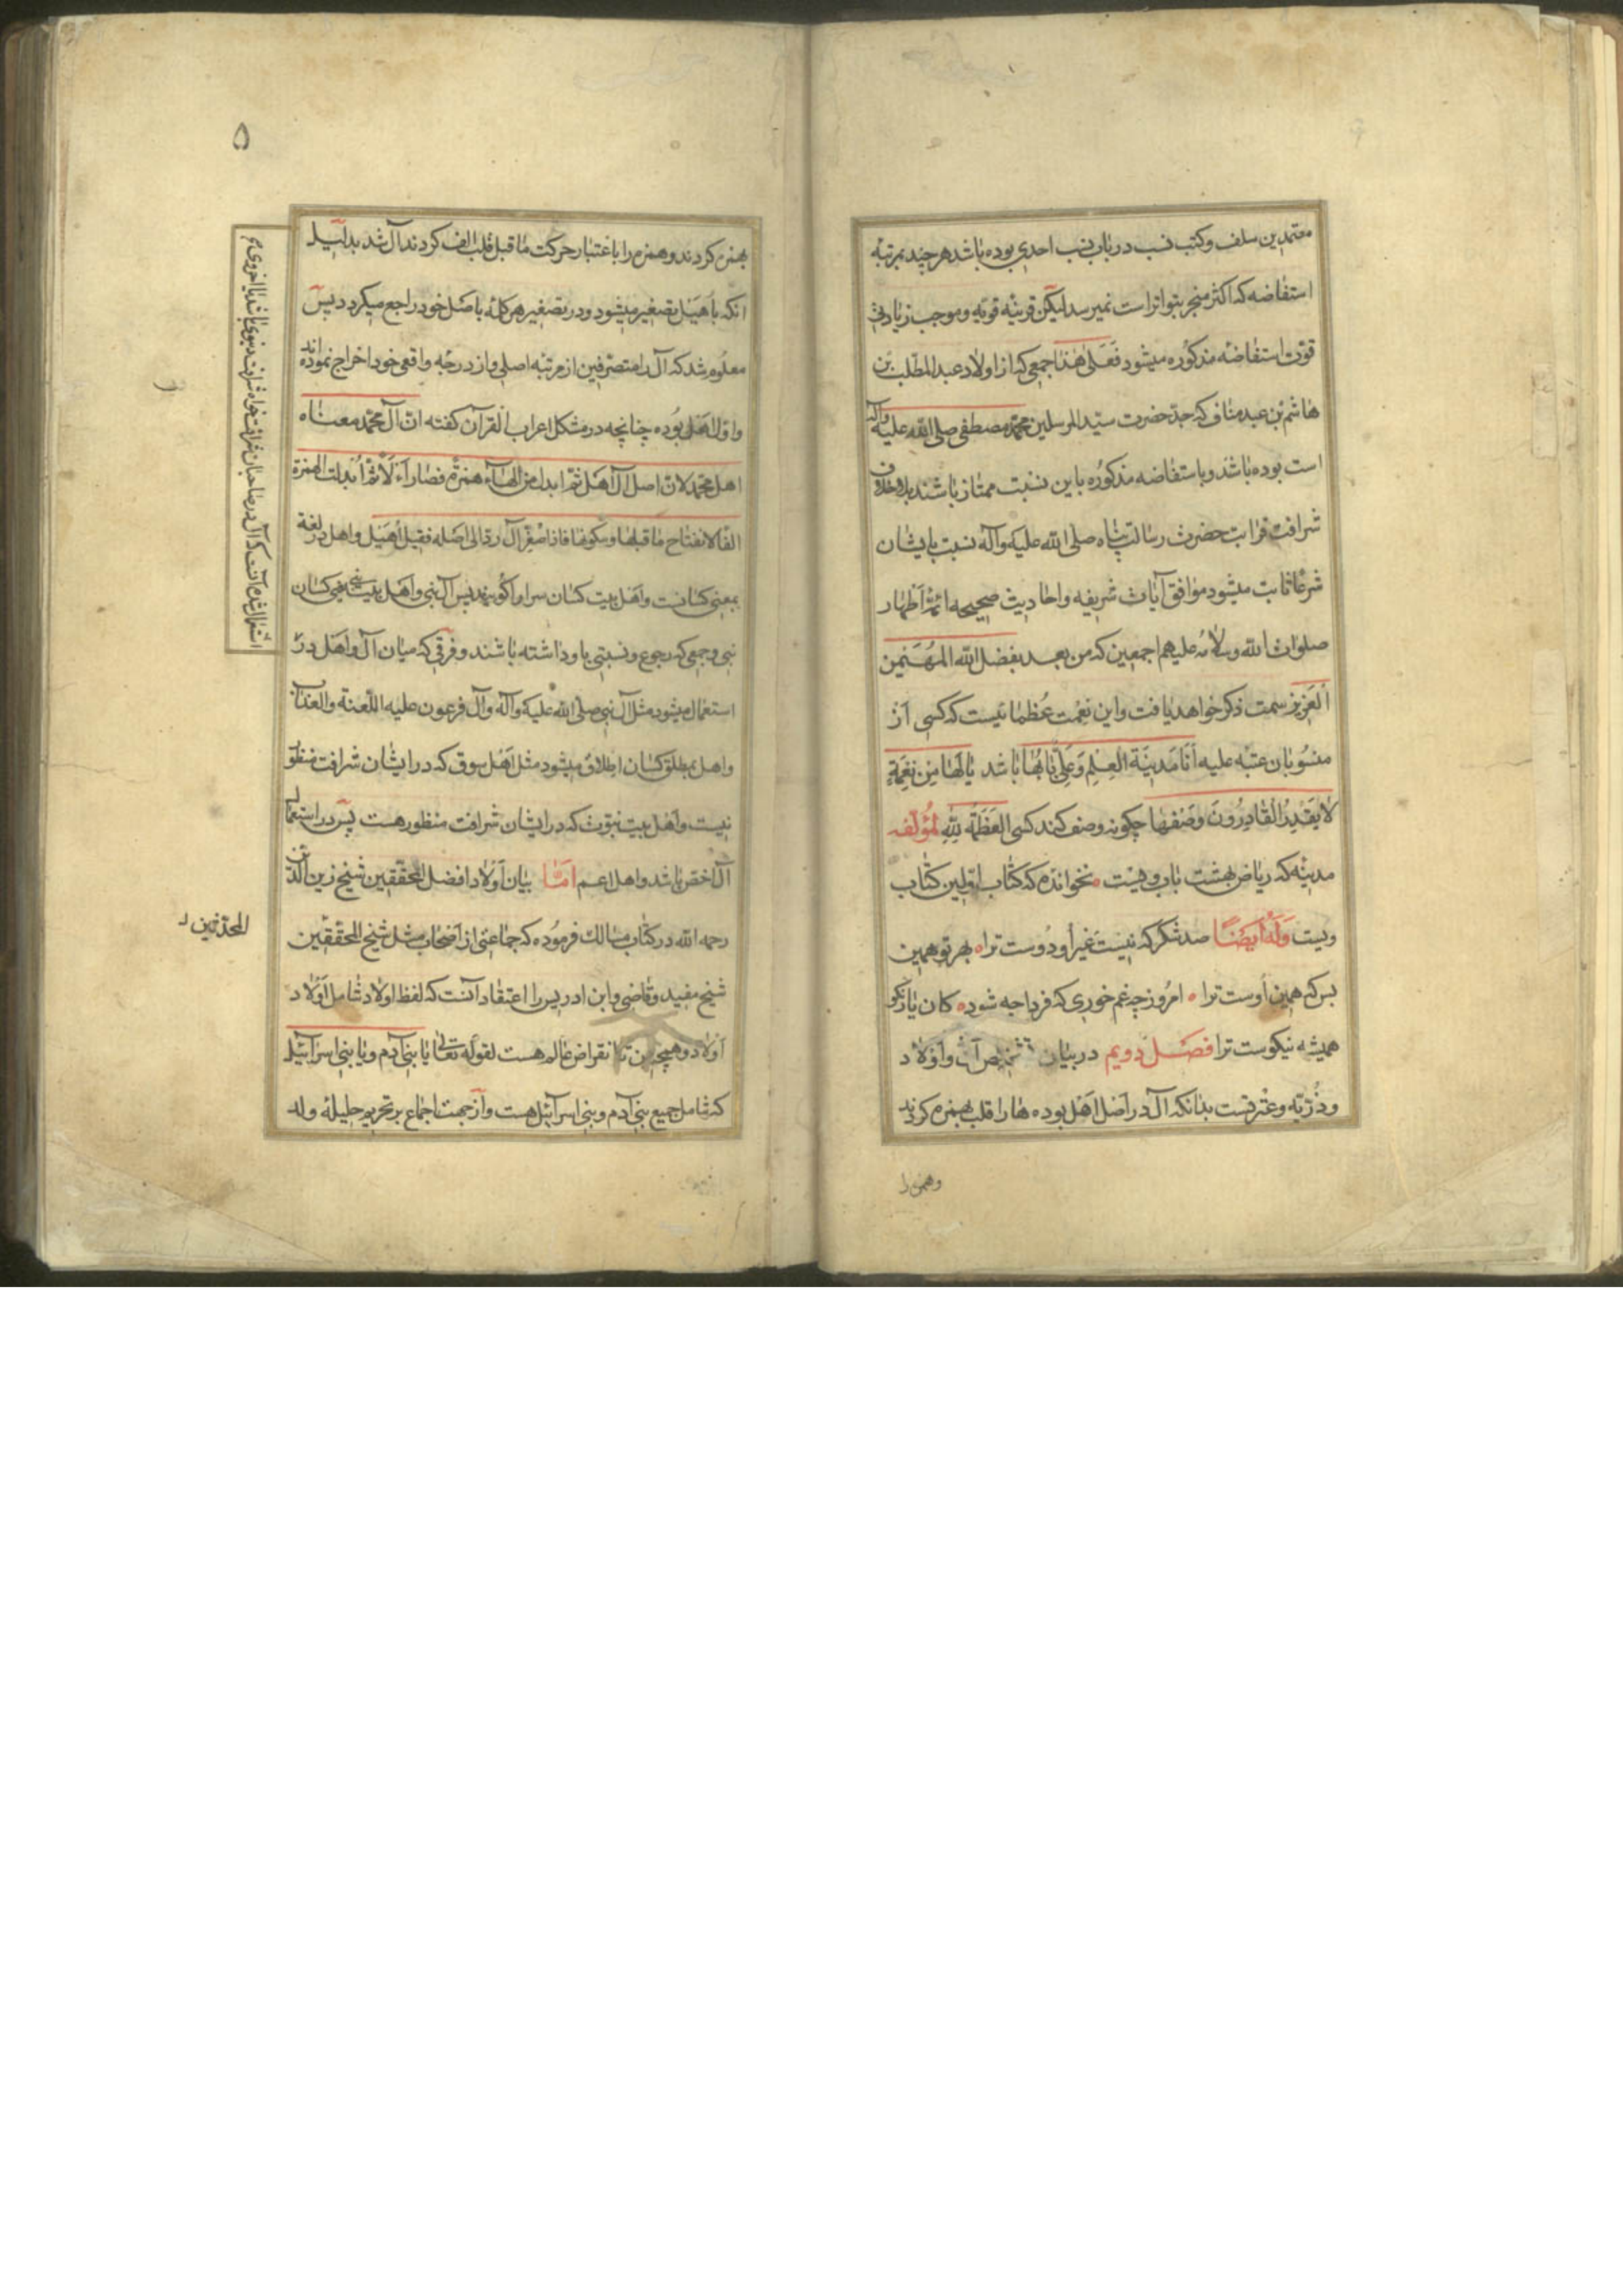 معتمدین سلف و کتب نسب در باب نسب احدی بوده باشد هر چند بمرتبه
استفاضه که اکثر منجر بتواتر است نمیرسد لیکن قرینه قویه و موجب زیادتی
قوت استفاضه مذکوره میشود فعلی هذا جمعی که از اولاد عبد المطلب بن
هاشم بن عبد مناف که جد حضرت سید المرسلین محمد مصطفی صلی الله علیه واله
است بوده باشد و باستفاضه مذکوره باین نسبت ممتاز باشند
شرافت قرابت حضرت رسالت پناه صلی الله علیه وآله نسبت بایشان
شرعا ثابت میشود موافق آیات شریفه و احادیث صحیحه ائمه اطهار
صلوات الله وسلامه علیهم اجمعین که من بعد بفضل الله المهیمن
العزیز سمت ذکر خواهد یافت و این نعمت عظما نیست که کسی از
منسوبان عتبه علیه انا مدینة العلم وعلی بابها باشد یا لها من نعمة
لا یقدر القادرون وصفها چکونه وصف کند کسی العظمة لله لمؤلفه
مدینه که ریاض بهشت باب ویست نخوانده که کتاب اولین کتاب
ویست وله ایضا صد شکر که نیست غیر او دوست ترا بهر تو همین
بس که همین اوست ترا امروز چه غم خوری که فردا چه شود کان یار نکو
همیشه نیکوست ترا فصل دویم در بیان تشخیص آل و اولاد
و ذریه و عترتست بدانکه آل در اصل اهل بوده ها را قلب بهمزه کردند
وهمزه را
۵
بهمزه کردند و همزه را باعتبار حرکت ما قبل قلب الف کردند آل شد بدلیل
انکه باهیل تصغیر میشود و در تصغیر هر کلمه باصل خود راجع میکردد پس
معلوم شد که آل را متصرفین از مرتبه اصلی و از درجه واقعی خود اخراج نموده اند
واول اهل بوده چنانچه در مشکل اعراب القرآن کفته ان آل محمد معناه
اهل محمد لان اصل آل اهل ثم ابدل من الهآء همزة فصار أءل ثم ابدلت الهمزة
الفا لانفتاح ما قبلها وسکونها فاذا صغر آل رد الی اصله فقیل اهیل و اهل در لغة
بمعنی کسانست و اهل بیت کسان سرا را کویند پس آل نبی و اهل بیت نبی یعنی کسان
نبی و جمعی که رجوع و نسبتی باو داشته باشند و فرقی که میان آل و اهل در
استعمال میشود مثل آل نبی صلی الله علیه وآله وآل فرعون علیه اللعنة والعذاب
و اهل بمطلق کسان اطلاق میشود مثل اهل سوق که در ایشان شرافت منظور
نیست و اهل بیت نبوت که در ایشان شرافت منظور هست پس در استعمال
آل اخص باشد و اهل اعم اما بیان اولاد افضل المحققین شیخ زین الدین
رحمه الله در کتاب مسالک فرموده که جماعتی از اصحاب مثل شیخ المحققین
شیخ مفید و قاضی و ابن ادریس را اعتقاد آنست که لفظ اولاد شامل اولاد
اولاد و همچنین تا انقراض عالم هست لقوله تعالی یا بنی آدم و یا بنی اسرآئیل
که شامل جمیع بنی آدم و بنی اسرآئیل هست و از جهت اجماع بر تحریم حلیله ولد
استعمال شده آنست که آل در صاحبان شرافت خواه شرافت دنیوی باشد یا اخروی
المحدثین